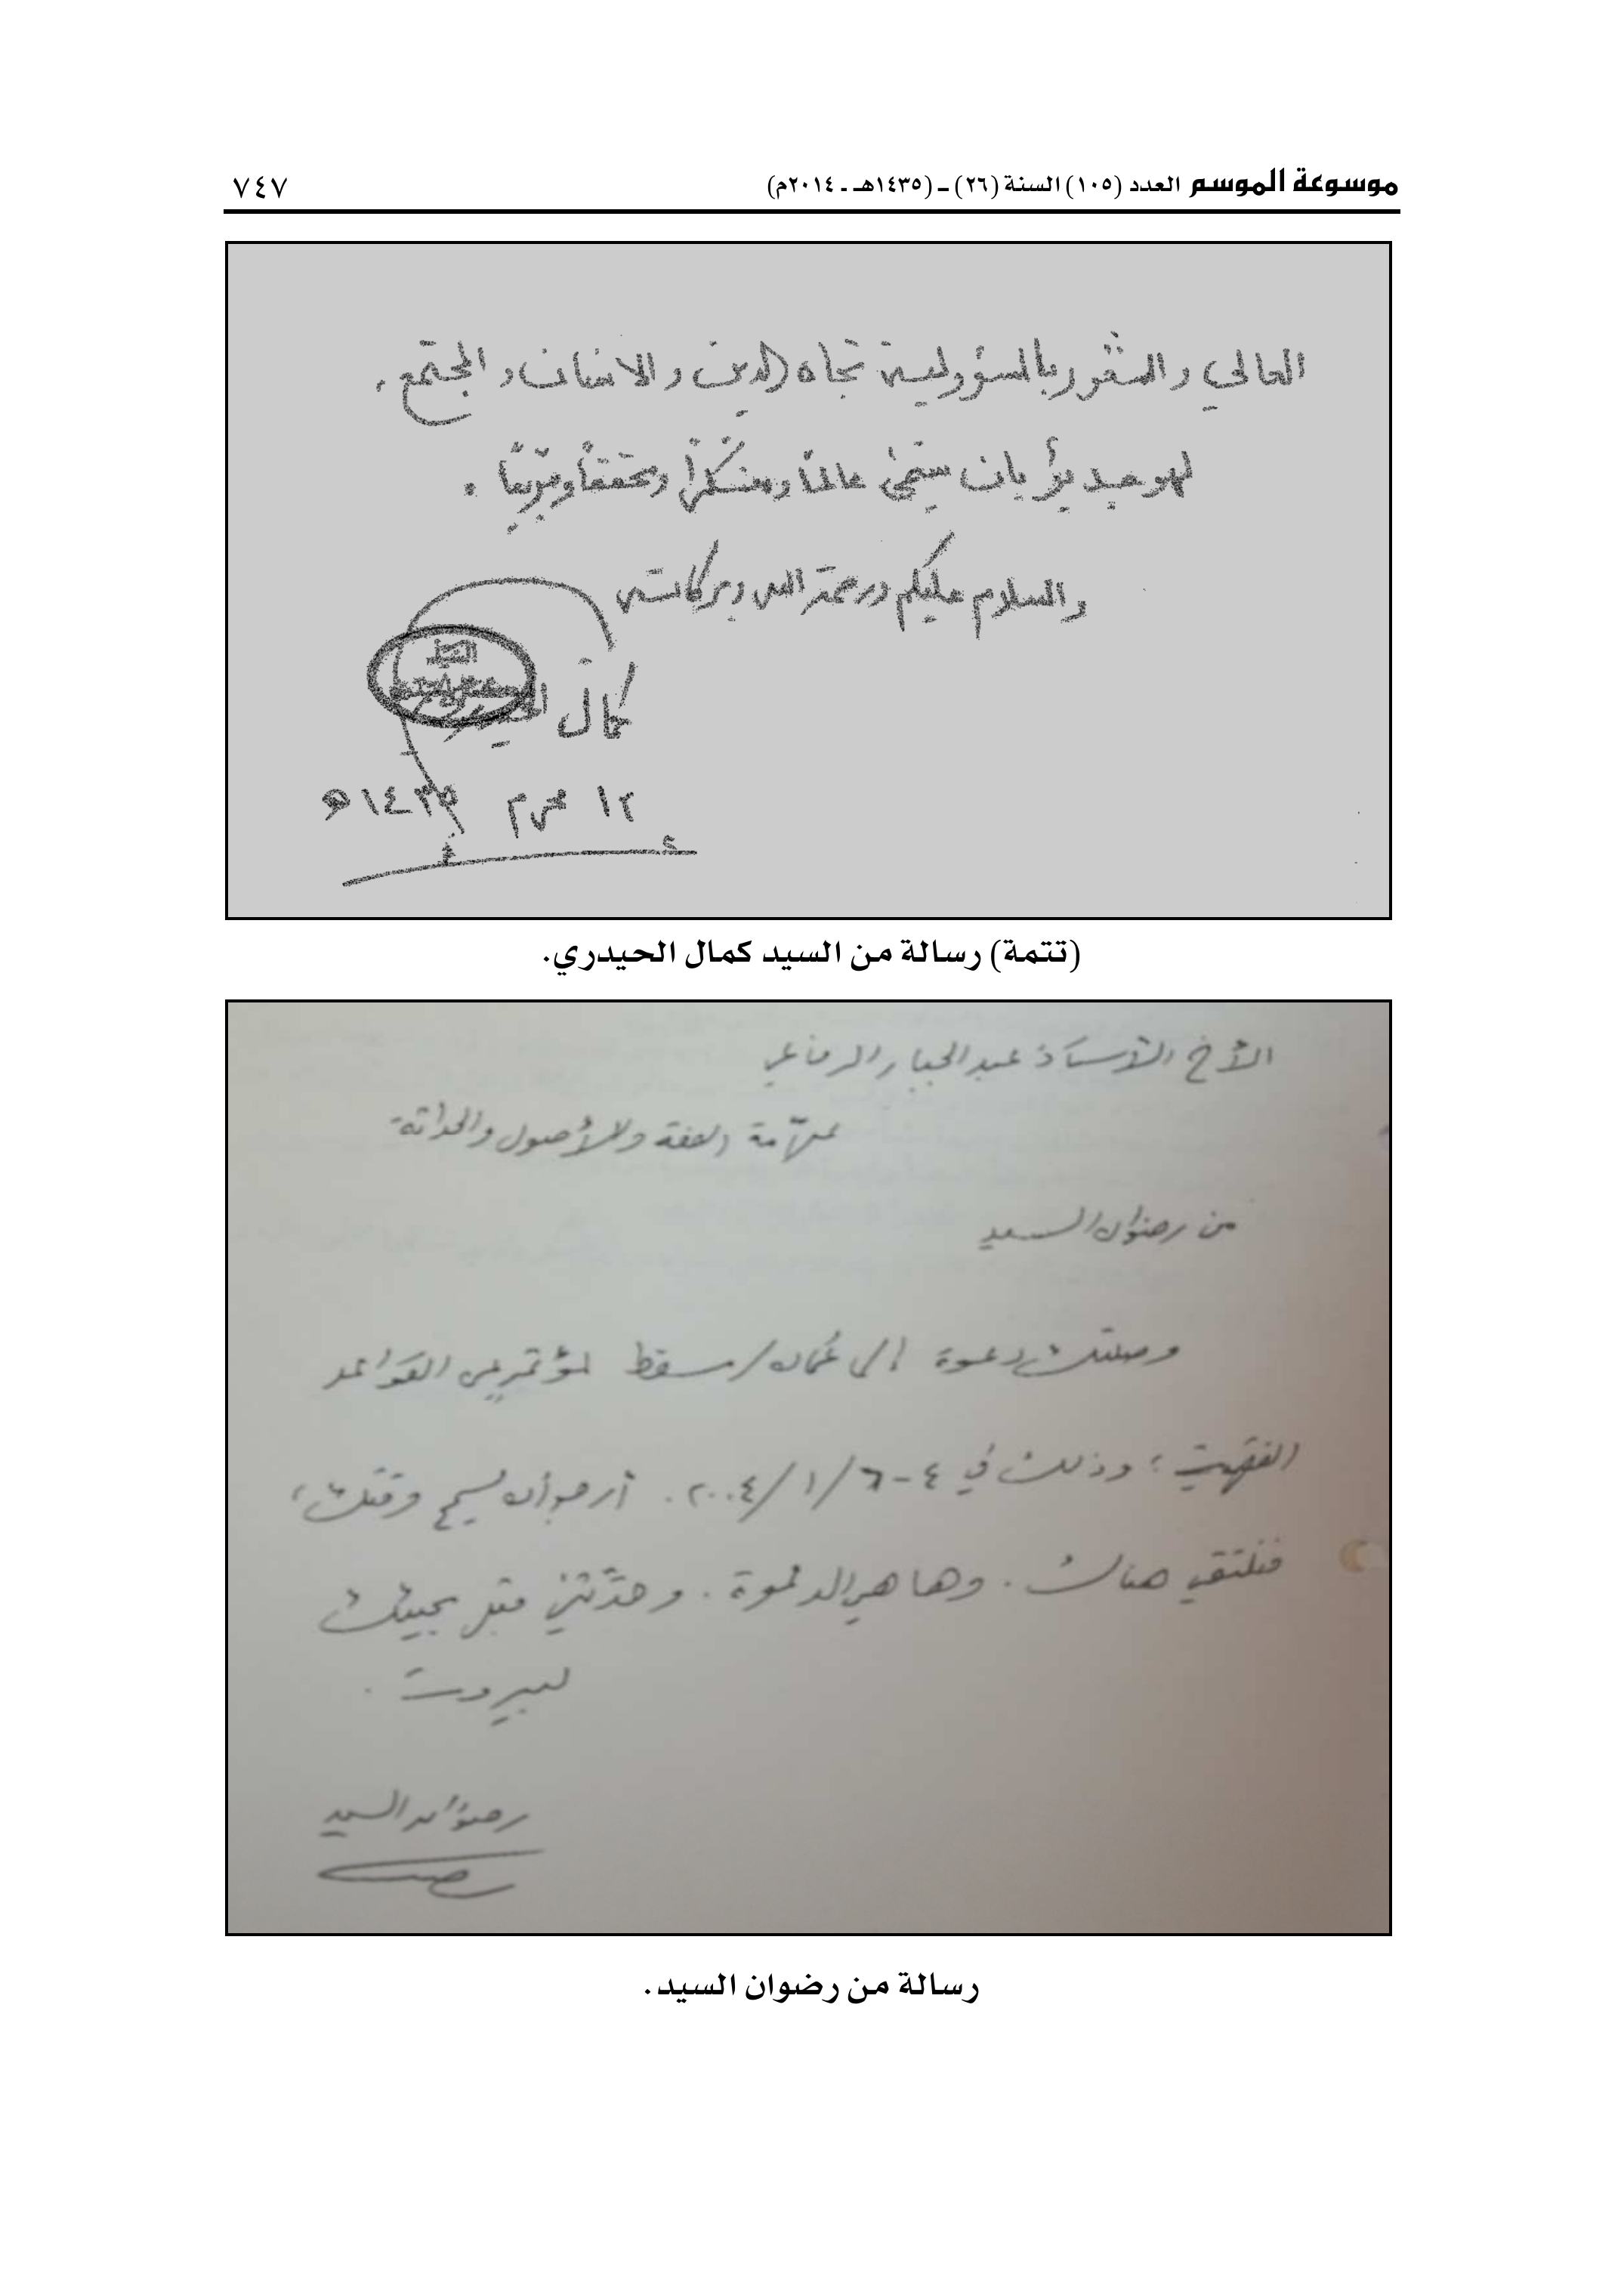 موسوعة الموسم العدد (١٠٥) السنة (٢٦) ـ (١٤٣٥هـ ـ ٢٠١٤م)
٧٤٧
العالي والشعور بالمسؤولية تجاه الدين والانسان والمجتمع،
لهو جدير بأن يسمى عالماً ومفكراً ومحققاً ومربياً .
والسلام عليكم ورحمة الله وبركاته
السيد
كمال الحيدري
١٢ محرم ١٤٣٣ هـ
(تتمة) رسالة من السيد كمال الحيدري.
الأخ الأستاذ عبد الجبار الرفاعي
علّامة الفقه والأصول والحداثة
من رضوان السيد
وصلتك دعوة إلى عُمان/مسقط لمؤتمرٍ عن القواعد
الفقهية؛ وذلك في ٤-٦/١/٢٠٠٤. أرجو أن يسمح وقتك،
فنلتقي هناك. وها هي الدعوة. وحدّثني قبل مجيئك
لبيروت.
رضوان السيد
رسالة من رضوان السيد.